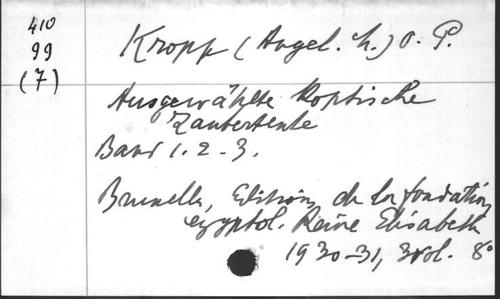 410
99
(7)
Kropp (Angel. M.) O. P.
Ausgewählte Koptische
Zaubertexte
Band 1. 2 - 3.
Bruxelles, Edition de la fondation
egyptol. Reine Elisabeth
1930-31, 3 vol. 8°